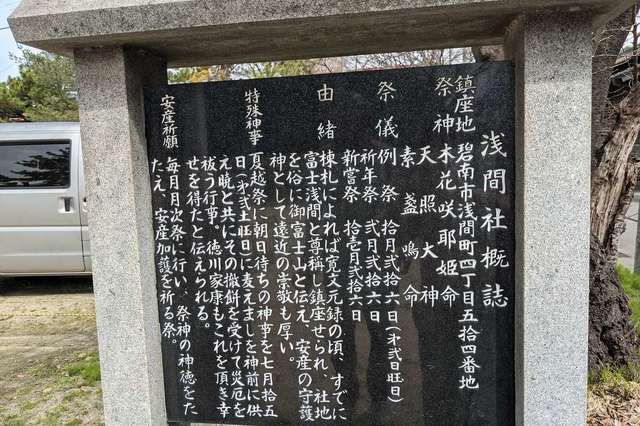 浅間社概誌
鎮座地 碧南市浅間町四丁目五拾四番地
祭神 木花咲耶姫命
天照大神
素盞鳴命
祭儀 例祭 拾月弐拾六日(第弐日旺日)
祈年祭 弐月弐拾六日
新嘗祭 拾壱月弐拾六日
由緒 棟札によれば寛文元録の頃、すでに
富士浅間と尊称し鎮座せられ、社地
を俗に御富士山と伝え、安産の守護
神として遠近の崇敬も厚い。
特殊神事 夏越祭に朝日待ちの神事を七月拾五
日(第弐土旺日)に麦えましを神前に供
え暁と共にその撤餅を受けて災厄を
祓う行事。徳川家康もこれを頂き幸
せを得たと伝えられる。
安産祈願 毎月月次祭に行い、祭神の神徳をた
たえ、安産加護を祈る祭。